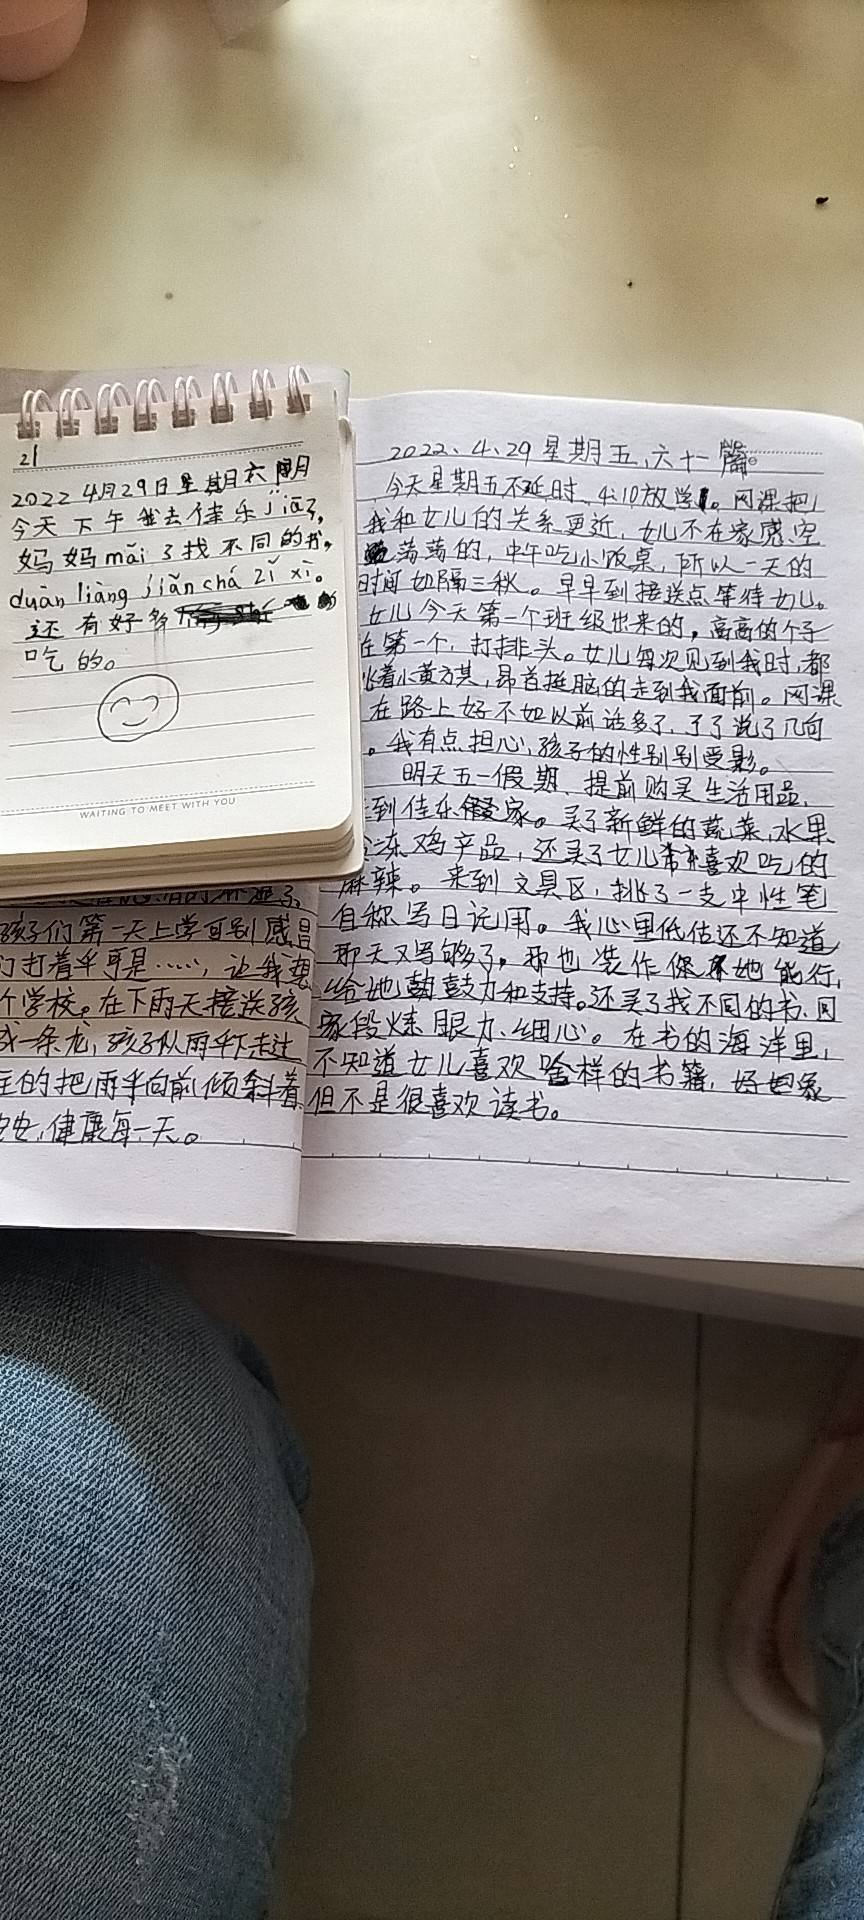 21
2022 4月29日星期六 阴月
今天下午我去佳乐jiā了,
妈妈mǎi了找不同的书,
duàn liàng jiǎn chá zǐ xì。
还有好多
吃的。
WAITING TO MEET WITH YOU
孩子们第一天上学可别感冒
们打着伞可是……,让我想
个学校。在下雨天接送孩
成一条龙,孩子从雨伞下走过
主的把雨伞向前倾斜着
安,健康每一天。
2022、4、29星期五、六十一篇。
今天星期五不延时、4:10放学。网课把
我和女儿的关系更近,女儿不在家感空
荡荡的,中午吃小饭桌,所以一天的
时间如隔三秋。早早到接送点等待女儿。
女儿今天第一个班级出来的,高高的个子
在第一个,打排头。女儿每次见到我时,都
着小黄方其,昂首挺脑的走到我面前。网课
在路上好不如以前话多了、了了说了几句
。我有点担心,孩子的性别别受影。
明天五一假期、提前购买生活用品、
到佳乐家。买了新鲜的蔬菜,水果
冻鸡产品,还买了女儿常喜欢吃的
麻辣。来到文具区,挑了一支中性笔
自称写日记用。我心里低估还不知道
那天又写够了。那也装作保她能行,
给她鼓力和支持。还买了找不同的书、回
家段炼眼力、细心。在书的海洋里,
不知道女儿喜欢啥样的书籍,好也象
但不是很喜欢读书。